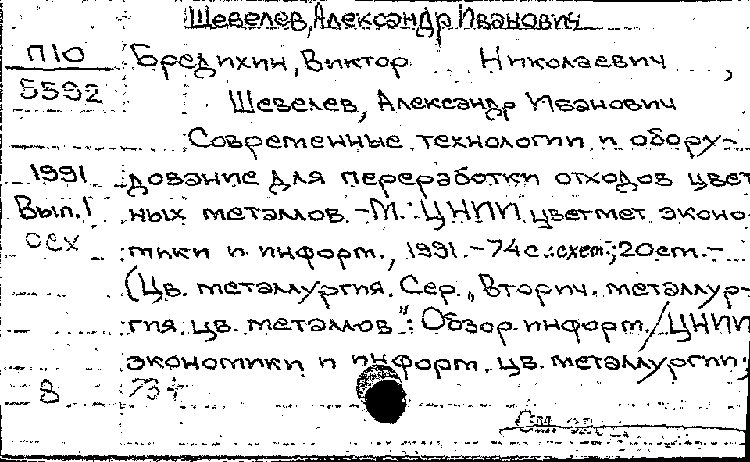 Шевелев, Александр Иванович
П10 Бредихин, Виктор Николаевич,
5592 Шевелев, Александр Иванович
Современные технологии и обору-
1991 дование для переработки отходов цвет
Вып.1 ных металлов. -М.: ЦНИИ цветмет эконо
осх мики и информ., 1991. -74с.: схем.; 20см.-
(Цв. металлургия. Сер. „Вторич. металлур-
гия цв. металлов": Обзор. информ. / ЦНИИ
экономики и информ. цв. металлургии;
8
См.